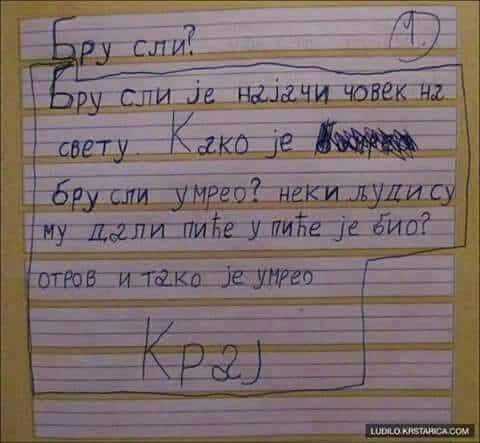 Бру сли?
1.
Бру сли је најачи човек на
свету. Како је
бру сли умрео? неки људи су
му дали пиће у пиће је био?
отров и тако је умрео
Крај
LUDILO.KRSTARICA.COM